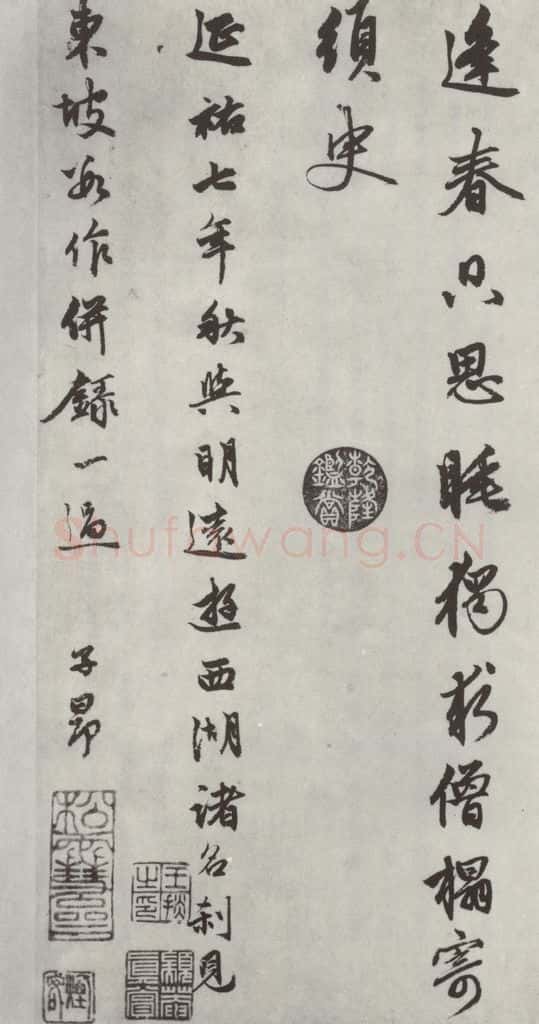 逢春只思睡獨求僧榻寄
須臾
乾隆鑑賞
延祐七年秋與明遠遊西湖諸名刹見
王掞之印
東坡作併録一過
子昂
Shufawang.CN